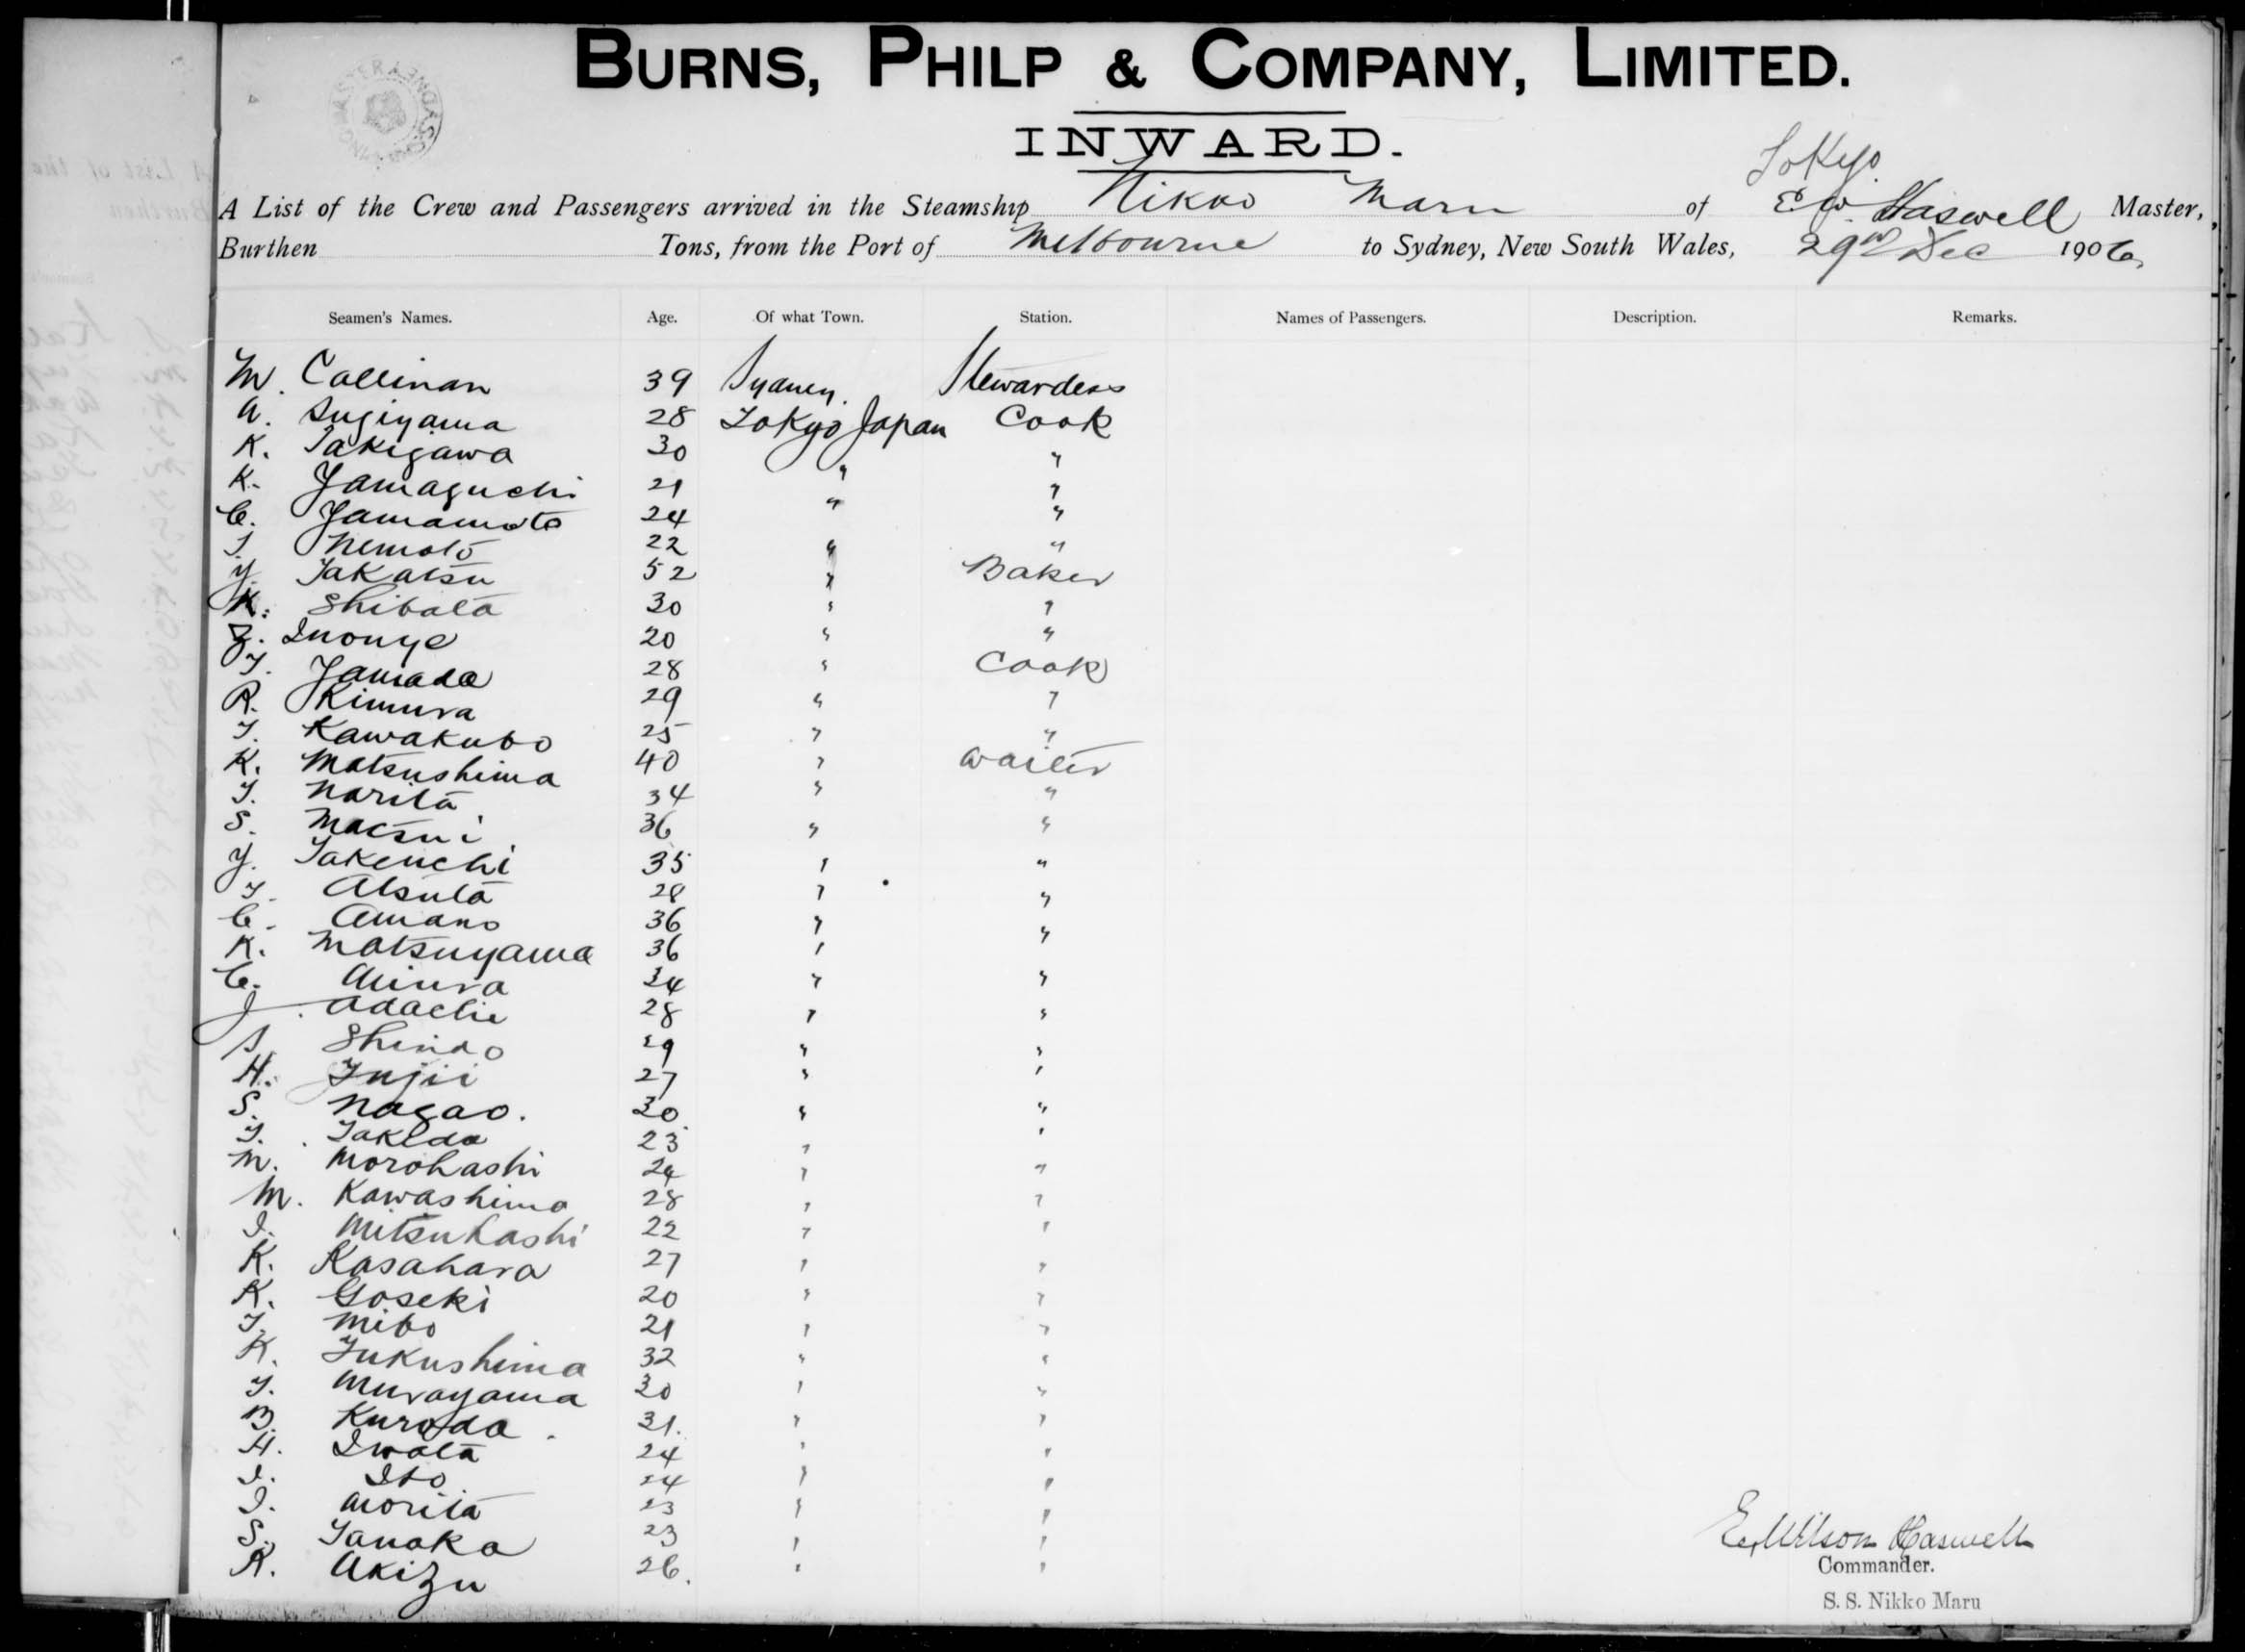 BURNS, PHILP & COMPANY, LIMITED.
INWARD.
Tokyo
A List of the Crew and Passengers arrived in the Steamship Nikko Maru of E W. Haswell Master,
Burthen Tons, from the Port of Melbourne to Sydney, New South Wales, 29th Dec 1906
Seamen's Names. Age. Of what Town. Station. Names of Passengers. Description. Remarks.
M. Callinan 39 Sydney. Stewardess
A. Sugiyama 28 Tokyo Japan Cook
K. Takigawa 30 " "
K. Yamaguchi 21 " "
C. Yamamoto 24 "
T Nemoto 22 " "
Y. Takatsu 52 " Baker
K. Shibata 30 " "
Z. Inouye 20 " "
T. Yamada 28 " Cook
R. Kimura 29 " "
T. Kawakubo 25 " "
K. Matsushima 40 " Waiter
T. Narita 34 " "
S. Matsui 36 " "
Y. Takeuchi 35 " "
T. Atsuta 28 " "
C. Amano 36 " "
K. Matsuyama 36 " "
C. Miura 34 " "
J. Adachi 28 " "
S. Shindo 29 " "
H. Fujii 27 " "
S. Nagao. 30 " "
T. Takeda 23 " "
M. Morohashi 24 " "
M. Kawashima 28 " "
I. Mitsuhashi 22 " "
K. Kasahara 27 " "
K. Goseki 20 " "
T. Mibo 21 " "
K. Fukushima 32 " "
T. Murayama 30 " "
B. Kuroda. 31. " "
H. Iwata 24 " "
I. Ito 24 " "
I. Morita 23 " "
S. Tanaka 23 " "
K. Akizu 26. " "
E. Wilson Haswell
Commander.
S. S. Nikko Maru